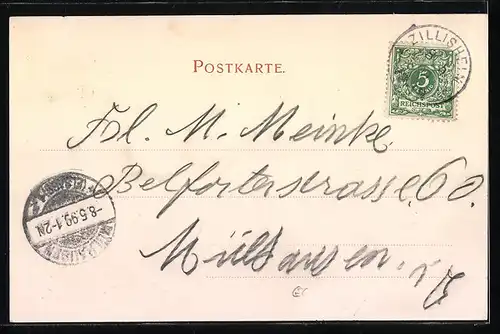 ZILLISHEIM
POSTKARTE.
5
REICHSPOST
Frl. M. Meinke
Belforterstrasse 60.
-8.5.99.1-2N
Mülhausen i/E